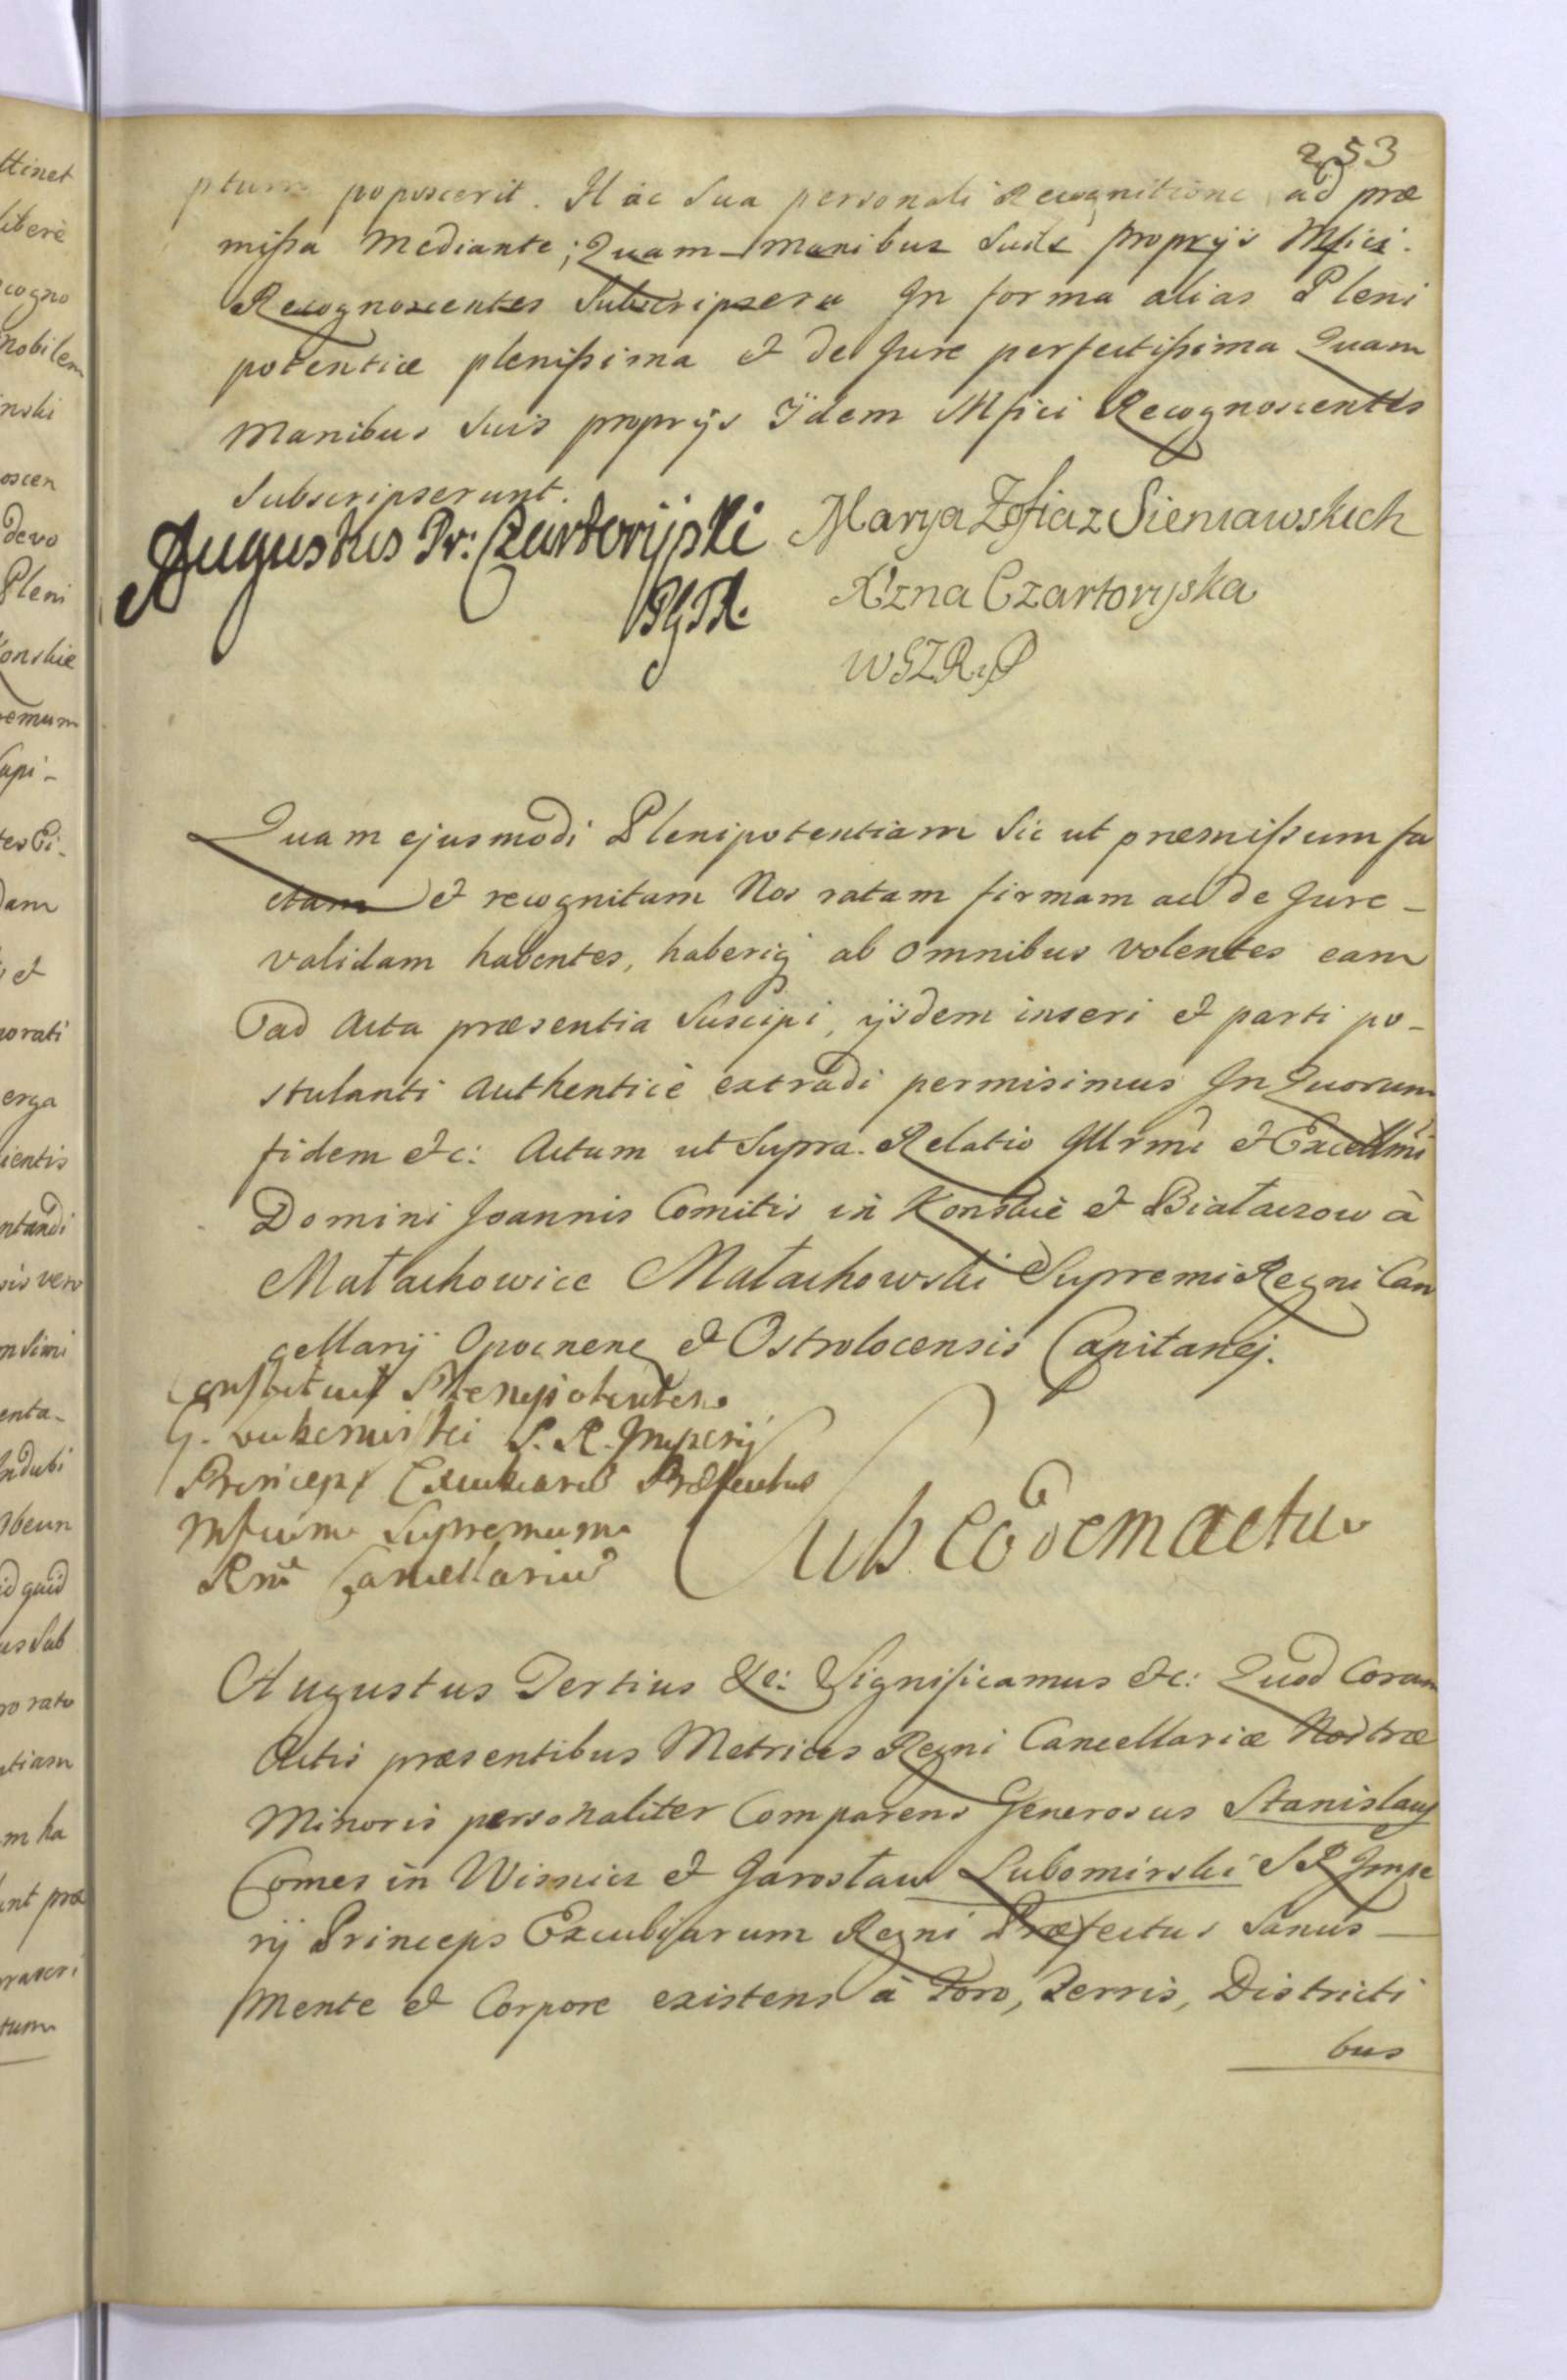 253
ptum poposcerit. Hac sua personali Recognitione ad præ
missa Mediante; Quam manibus suis proprijs Mfici
Recognoscentes Subscripseru In forma alias Pleni
potentiæ plenissima et de Jure perfectissima Quam
Manibus suis proprijs Ijdem Mfici Recognoscentes
Subscripserunt.
Augustus Pr: Czartoryiski Marya Zofia z Sieniawskich
Xżna Czartoryska
WGZRyP
Quam ejusmodi Plenipotentiam sic ut præmissum fa
ctam et recognitam Nos ratam firmam ac de Jure
validam habentes, haberiq ab omnibus volentes eam
ad Acta præsentia Suscipi, ijsdem inseri et parti po-
stulanti Authenticè extradi permisimus In Quorum
fidem etc: Actum ut Supra. Relatio Illrmi et Excellmi
Domini Joannis Comitis in Konskie et Białaczow à
Małachowice Małachowski Supremi Regni Can
cellarij Opocnene et Ostrolocensis Capitanej.
Constituit Plenipotentem
G. Lubomirski S. R. Imperij
Princeps Excubiarum Præfectus
Mficum Supremum
Rni Cancellarium
Sub eodem actu
Augustus Tertius etc: Significamus etc: Quod Coram
Actis præsentibus Metrices Regni Cancellariæ Nostræ
Minoris personaliter Comparens Generosus Stanislaus
Comes in Wisnicz et Jarosław Lubomirski S R Impe
rij Princeps Excubijarum Regni Præfectus Sanus
Mente et Corpore existens à Foro, Terris, Districti
bus